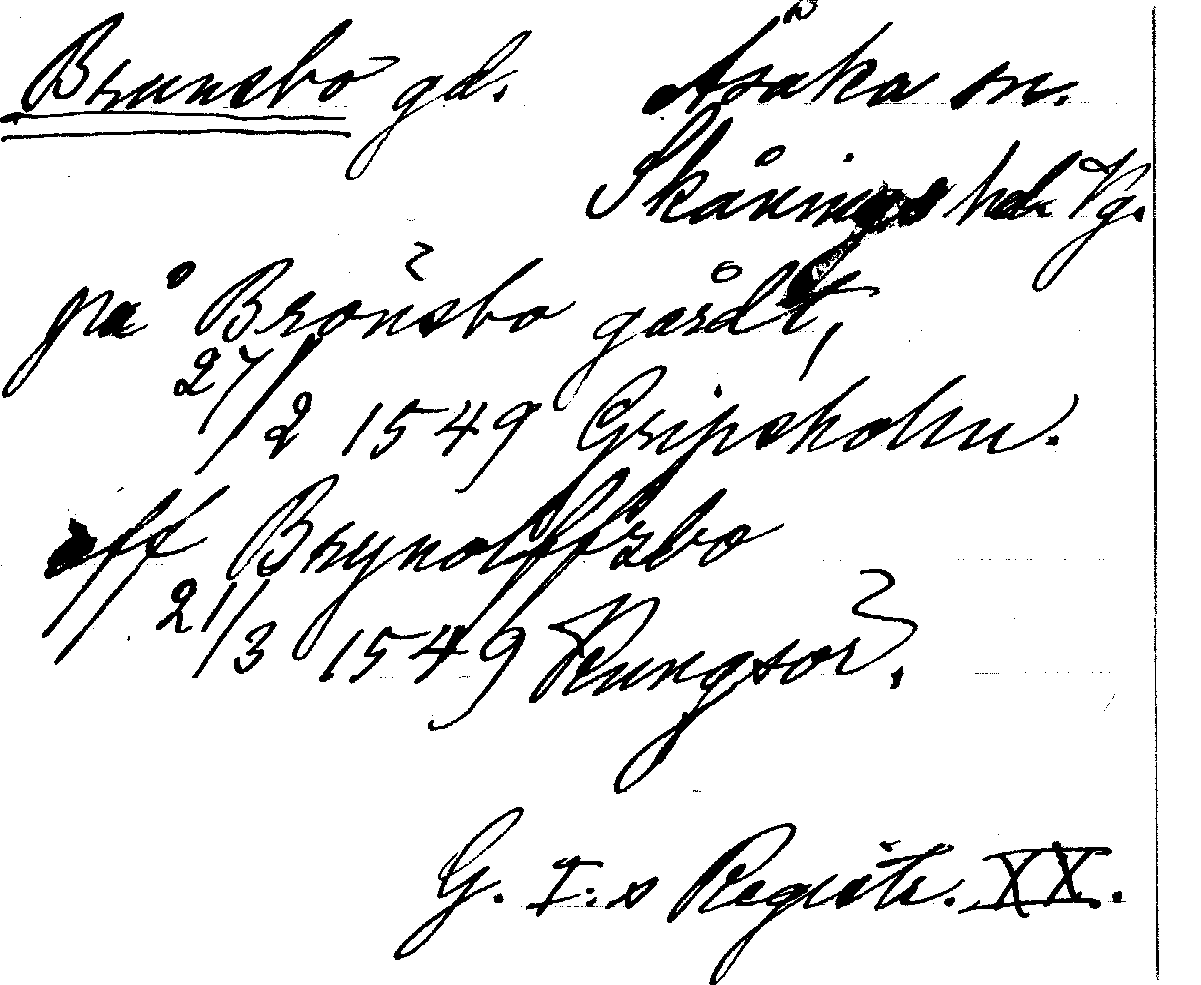 Brunsbo gd. Åsaka sn.
Skånings hd. Vg.
på Brönsbo gårdt,
27/2 1549 Gripsholm.
aff Brynolffzbo
21/3 1549 Kungsör.
G. I:s Registr. XX.